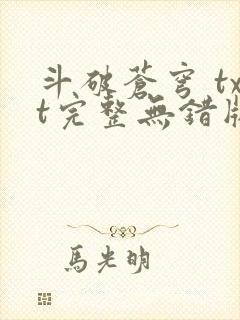 斗破蒼穹 tx
t完整無錯版
馬光明